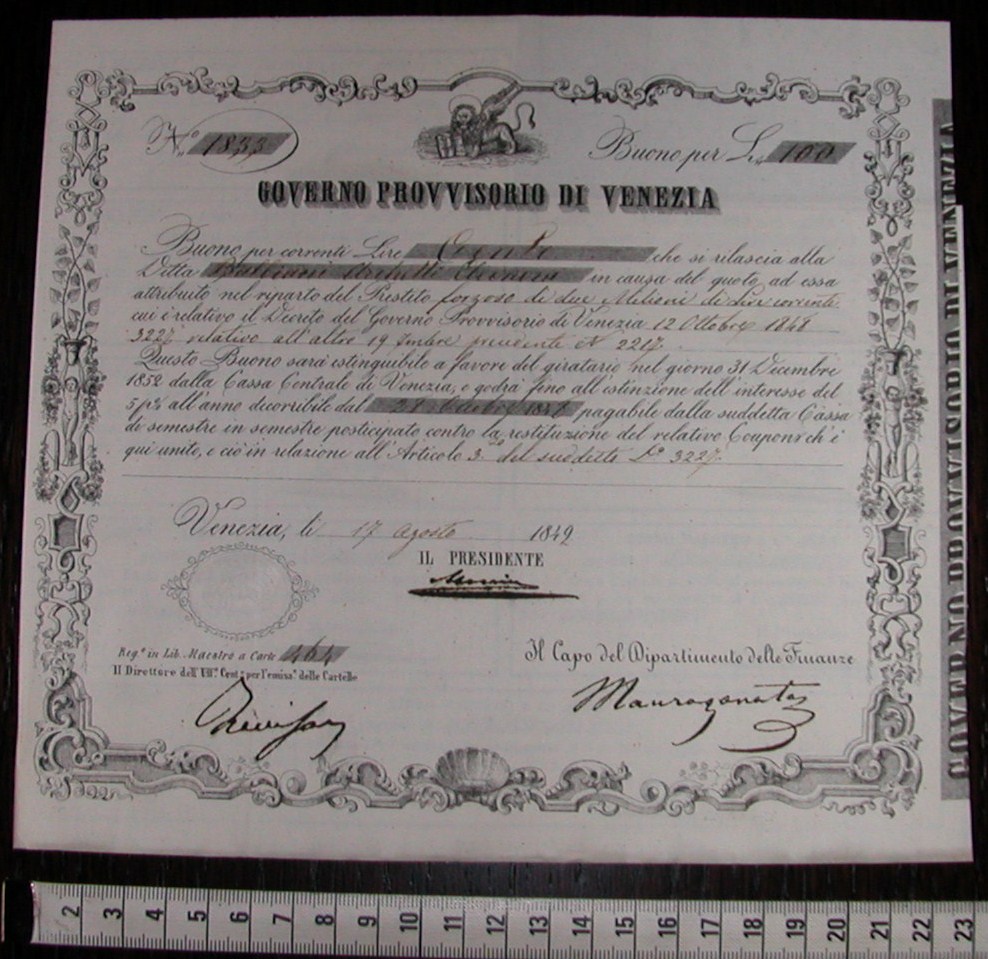 N.º 1833
Buono per L. 100
GOVERNO PROVVISORIO DI VENEZIA
Buono per correnti Lire Cento che si rilascia alla
Ditta in causa del quoto ad essa
attribuito nel riparto del Prestito forzoso di due Milioni di lire correnti
cui è relativo il Decreto del Governo Provvisorio di Venezia 12 Ottobre 1848
3227 relativo all'altro 19 7mbre precedente N. 2217.
Questo Buono sarà estinguibile a favore del giratario nel giorno 31 Decembre
1852 dalla Cassa Centrale di Venezia, e godrà fino all'istinzione dell'interesse del
5 p% all'anno decorribile dal pagabile dalla suddetta Cassa
di semestre in semestre posticipato contro la restituzione del relativo Coupons ch'è
qui unito, e ciò in relazione all'Articolo 3.º del suddetto D.º 3227.
Venezia, li 17 Agosto 1849
IL PRESIDENTE
Reg.º in Lib. Maestro a Carte 464
Il Capo del Dipartimento delle Finanze
Il Direttore dell' Uff.º Cent.º per l'emiss.º delle Cartelle
GOVERNO PROVVISORIO DI VENEZIA
2 3 4 5 6 7 8 9 10 11 12 13 14 15 16 17 18 19 20 21 22 23